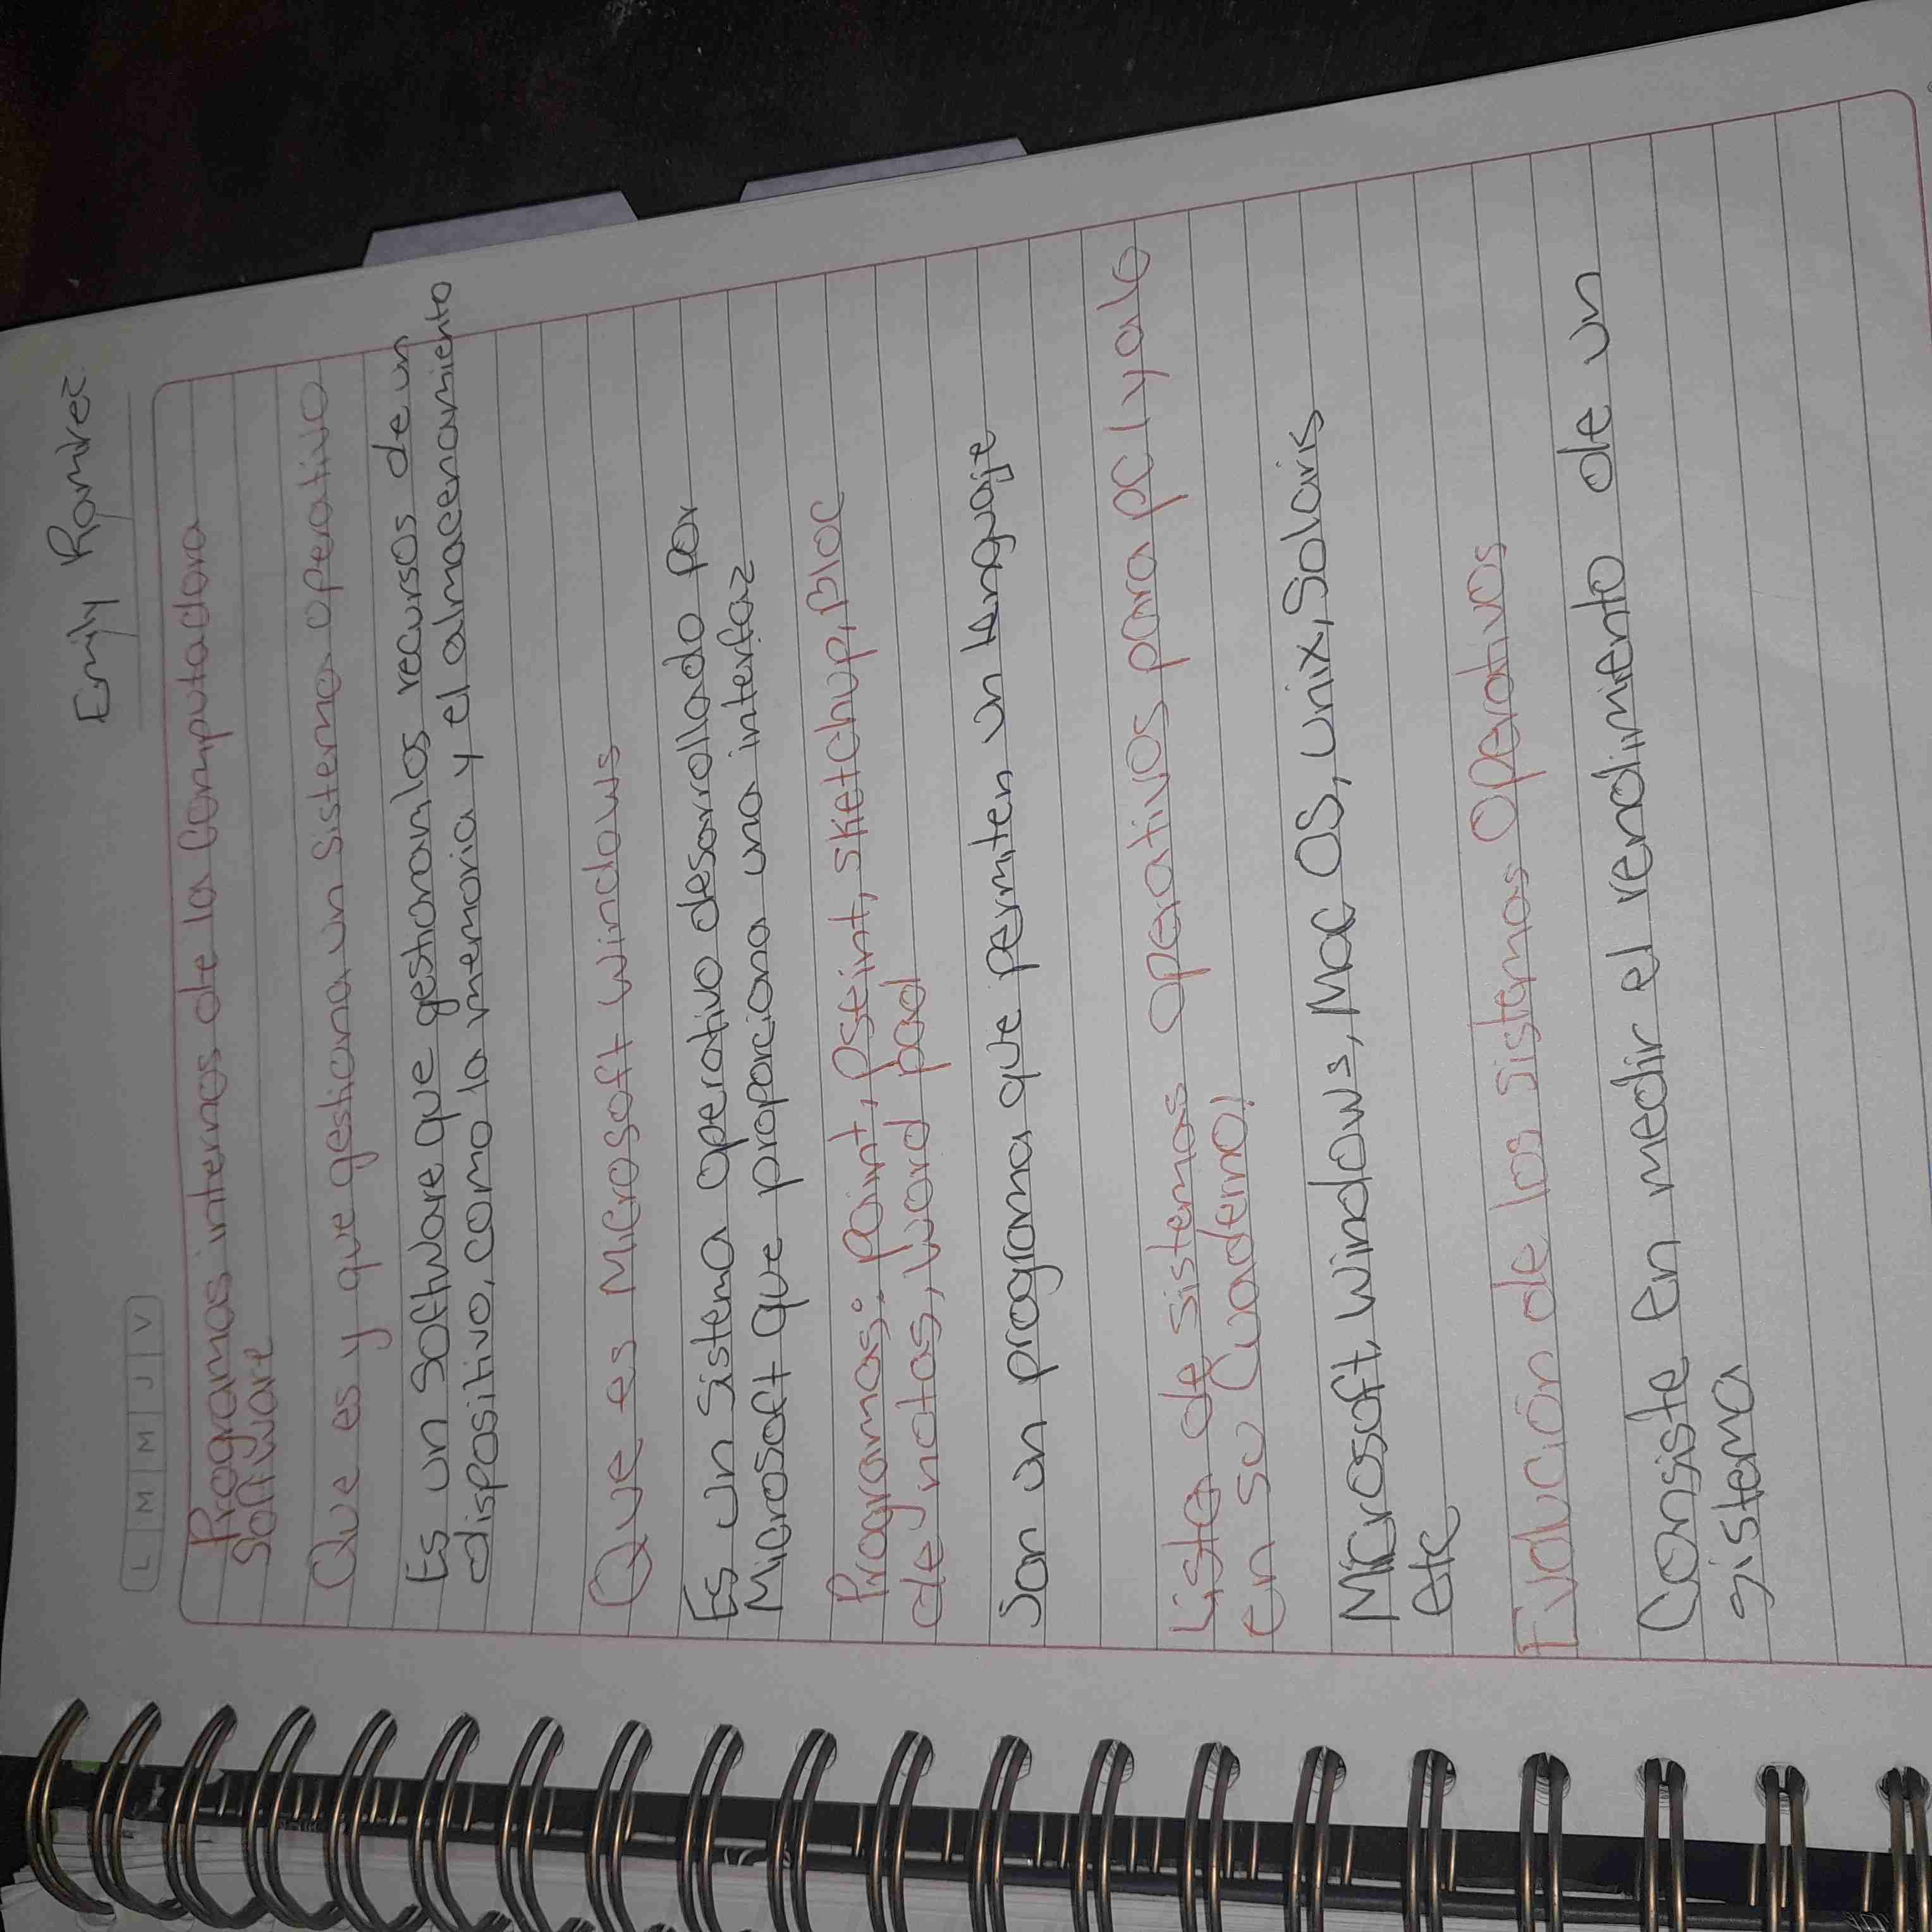 Emily Ramirez
L M M J V
Programas internos de la Computadora
Software
Que es y que gestiona un sistema operativo
Es un software que gestionan los recursos de un
dispositivo, como la memoria y el almacenamiento
Que es Microsoft windows
Es un sistema operativo desarrollado por
Microsoft que proporciona una interfaz
Programas: paint, pseint, sketchup, Bloc
de notas, word pad
Son un programa que permiten un lenguaje
Lista de sistemas operativos para pc
en su Cuaderno,
Microsoft, windows, Mac OS, unix, Solaris
etc
Evalución de los sistemas Operativos
Consiste en medir el rendimiento de un
sistema